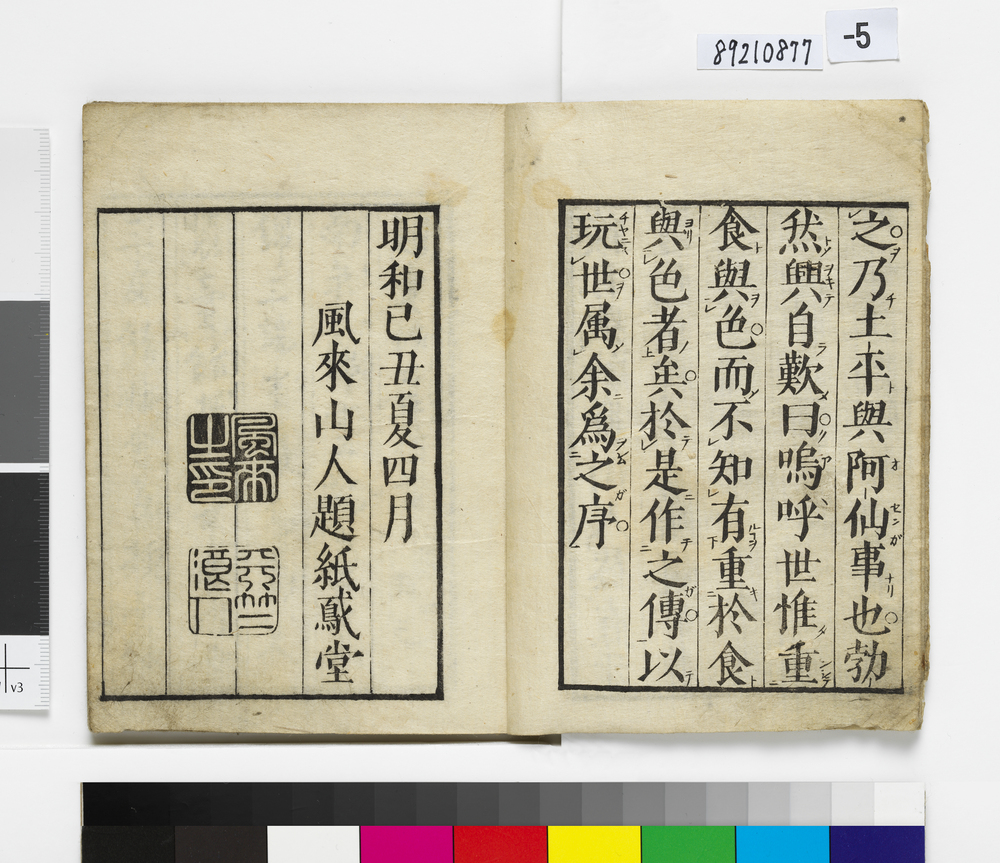 89210877
-5
之乃土平與阿仙事也勃
然興自歎曰嗚呼世惟重
食與色而不知有重於食
與色者矣於是作之傳以
玩世属余爲之序
明和己丑夏四月
風來山人題紙鳶堂
v3